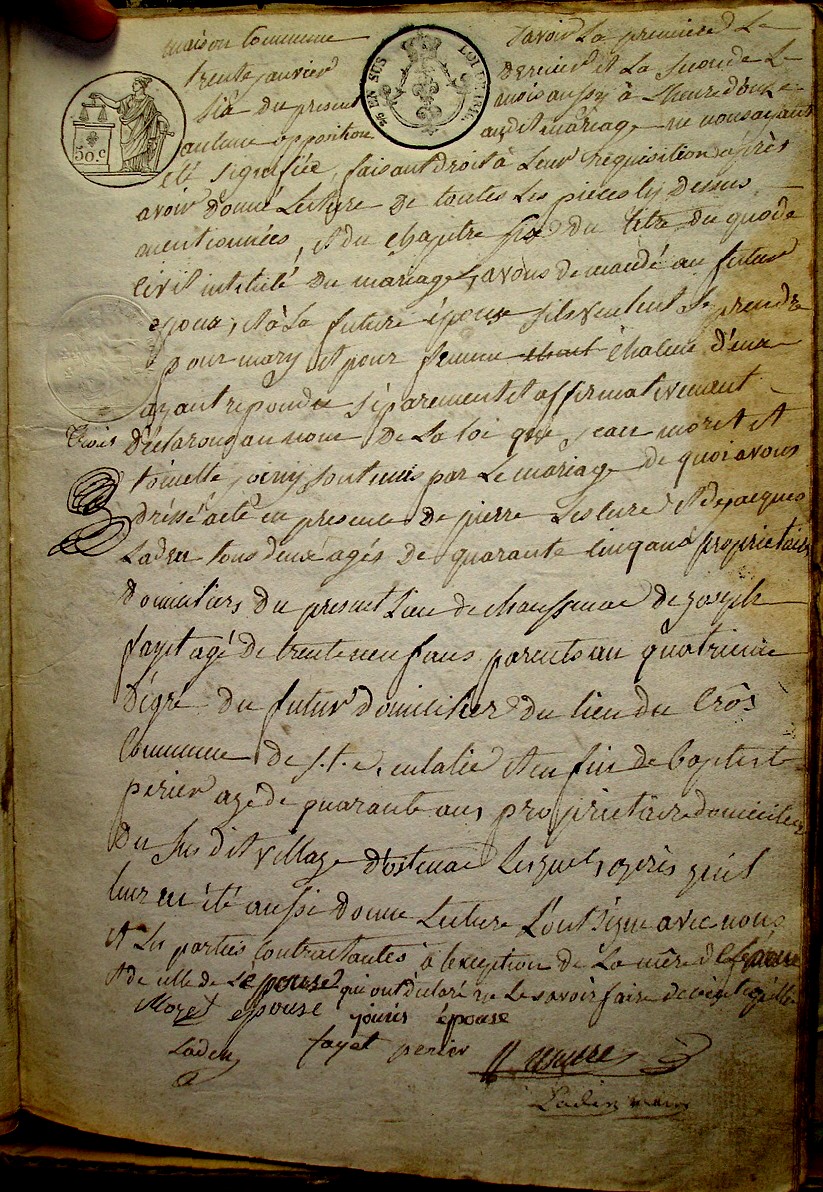 maison Commune savoir La premiere Le
trente janvier Dernier et La seconde Le
six du present mois aussy à L'heure de
aucune opposition audit mariage ne nous ayant
25 EN SUS LOI DE
50.c
été signifiée, faisant droit à Leur requisition après
avoir donné Lecture De toutes Les pieces cy Dessus
mentionnées, et du chapitre six du titre du quode
Civil intitulé Du mariage, avons demandé au futur
epoux, et à La future épouse s'ils veulent se prendre
pour mary et pour femme chacun d'eux
ayant repondu séparement et affirmativement
trois Déclarons au nom De La loi que jean moret et
toinette joiny sont unis par Le mariage De quoi avons
dréssé acte en presence De pierre Lescure et de jacques
Laden tous deux agés De quarante cinq ans proprietaires
Domiciliers Du present Lieu de chaussenac De joseph
fayet agé De trente neuf ans parents au quatrieme
Dégré Du futur domicilier Du lieu du Cros
Commune De s.t.e. eulalie et enfin de baptiste
perier agé de quarante ans proprietaire domicilier
Du susdit village d'ostenac Lesquels, après qu'il
leur en été aussi donné Lecture L'ont signé avec nous
et Les parties Contractantes à l'exception De La mère
et de celle de L'epouse qui ont déclaré ne Le savoir faire De ce
Moret epouse jounis épouse
Laden fayet perier Lescure
Laden